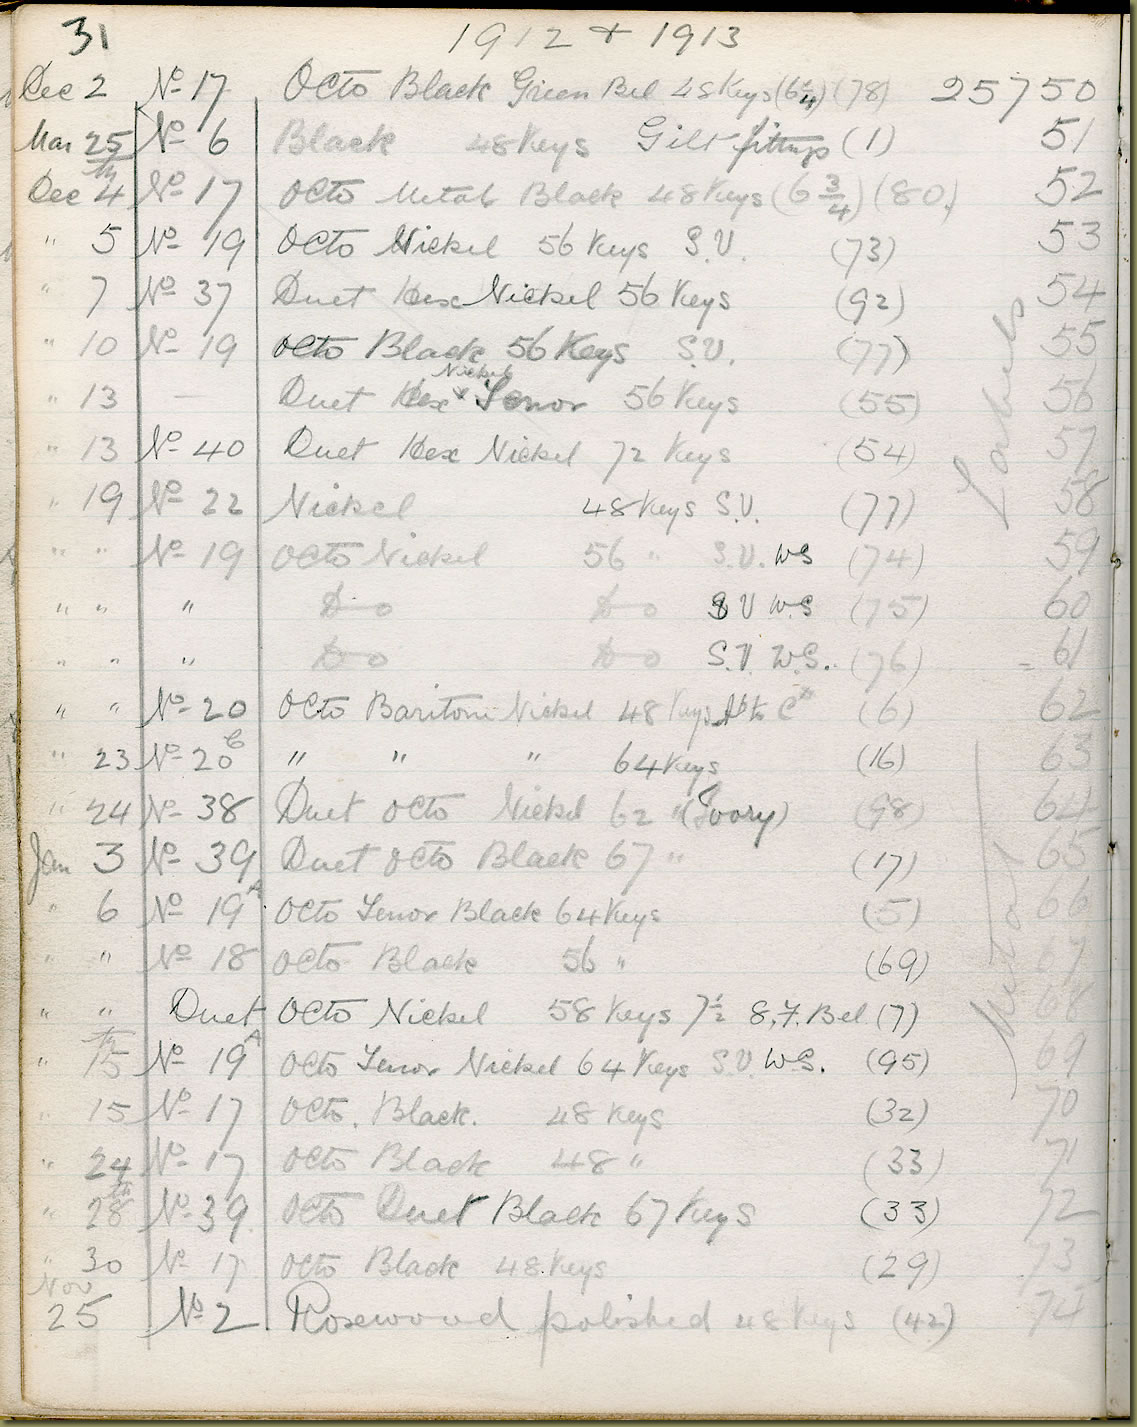 31 1912 & 1913
Dec 2 No 17 Octo Black Green Bel 48 Keys (6¼) (78) 25750
Mar 25th No 6 Black 48 Keys Gilt fittings (1) 51
Dec 4 No 17 Octo Metal Black 48 Keys (6 3/4) (80) 52
" 5 No 19 Octo Nickel 56 Keys S.V. (73) 53
" 7 No 37 Duet Hex Nickel 56 Keys (92) 54
" 10 No 19 Octo Black 56 Keys S.V. (77) 55
Nickel
" 13 — Duet Hex Tenor 56 Keys (55) 56
" 13 No 40 Duet Hex Nickel 72 Keys (54) 57
" 19 No 22 Nickel 48 Keys S.V. (77) 58
" " No 19 Octo Nickel 56 " S.V. WS (74) 59
" " " Do Do S V W.S (75) 60
" " " Do Do S.V. W.S. (76) 61
" " No 20 Octo Baritone Nickel 48 Keys to C (6) 62
" 23 No 20 " " " 64 Keys (16) 63
" 24 No 38 Duet Octo Nickel 62 " (Ivory) (98) 64
Jan 3 No 39 Duet Octo Black 67 " (17) 65
" 6 No 19A Octo Tenor Black 64 Keys (5) 66
" " No 18 Octo Black 56 " (69) 67
" " Duet Octo Nickel 58 Keys 7½ 8.F. Bel (7) 68
" 15th No 19A Octo Tenor Nickel 64 Keys S.V. W.S. (95) 69
" 15 No 17 Octo. Black. 48 Keys (32) 70
" 24 No 17 Octo Black 48 " (33) 71
" 28th No 39. Octo Duet Black 67 Keys (33) 72
" 30 No 17 Octo Black 48 Keys (29) 73
Nov 25 No 2 Rosewood polished 48 Keys (42) 74